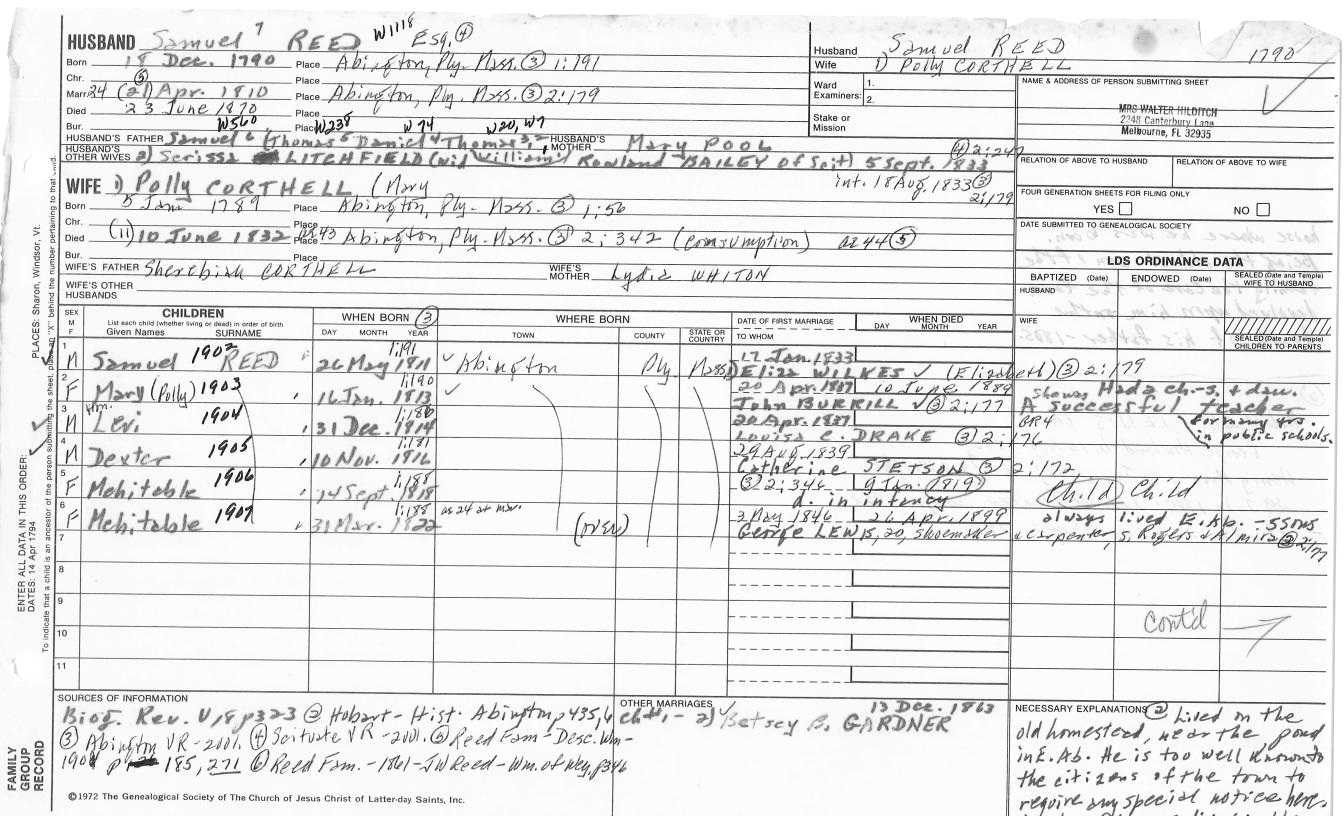 HUSBAND Samuel 7 REED W1118 Esq. ④
Born 18 Dec. 1790 Place Abington, Ply. Mass. ③ 1:191
Chr. ⑤ Place
Marr. 24 (21) Apr. 1810 Place Abington, Ply. Mass. ③ 2:179
Died 23 June 1870 Place
Bur. W560 Place W238 W74 W20, W7
HUSBAND'S FATHER Samuel 6 (Thomas 5 Daniel 4 Thomas 3, 2, 1 HUSBAND'S MOTHER Mary POOL
HUSBAND'S OTHER WIVES 2) Serissa LITCHFIELD (wid William Rowland BAILEY of Scit) 5 Sept. 1833 ④ 2:247
int. 18 Aug. 1833 ③ 2:179
WIFE 1) Polly CORTHELL (Mary
Born 5 Jan 1789 Place Abington, Ply. Mass. ③ 1:56
Chr. Place
Died (11) 10 June 1832 ae 43 Place Abington, Ply. Mass. ③ 2:342 (consumption) ae 44 ⑤
Bur. Place
WIFE'S FATHER Sherebiah CORTHELL WIFE'S MOTHER Lydia WHITON
WIFE'S OTHER HUSBANDS
Husband Samuel REED 1790
Wife 1) Polly CORTHELL
Ward Examiners: 1. 2.
Stake or Mission
NAME & ADDRESS OF PERSON SUBMITTING SHEET
MRS WALTER HILDITCH
2248 Canterbury Lane
Melbourne, FL 32935
RELATION OF ABOVE TO HUSBAND RELATION OF ABOVE TO WIFE
FOUR GENERATION SHEETS FOR FILING ONLY
YES NO
DATE SUBMITTED TO GENEALOGICAL SOCIETY
LDS ORDINANCE DATA
BAPTIZED (Date) ENDOWED (Date) SEALED (Date and Temple) WIFE TO HUSBAND
HUSBAND
WIFE
SEALED (Date and Temple) CHILDREN TO PARENTS
SEX M F CHILDREN List each child (whether living or dead) in order of birth Given Names SURNAME
WHEN BORN ③ DAY MONTH YEAR
WHERE BORN TOWN COUNTY STATE OR COUNTRY
DATE OF FIRST MARRIAGE TO WHOM
WHEN DIED DAY MONTH YEAR
1 M Samuel 1902 REED 1:191 26 May 1811 Abington Ply. Mass 17 Jan. 1833
1) Eliza WILKES (Elizabeth) ③ 2:179
2 F Mary (Polly) 1903 1:190 16 Jan. 1813 20 Apr. 1837 10 June 1889
John BURRILL ③ 2:177
Had 2 ch-s. + dau.
3 M Wm. Levi 1904 1:186 31 Dec. 1814 20 Apr. 1837
Louisa C. DRAKE ③ 2:176
A successful teacher BR4 for many yrs. in public schools.
4 M Dexter 1905 1:181 10 Nov. 1816 29 Aug. 1839
Catherine STETSON ③ 2:172
5 F Mehitable 1906 1:188 14 Sept. 1818 ③ 2:346 9 Jan. 1819
d. in infancy
(Child) Child
6 F Mehitable 1907 1:188 as 24 at mar. 31 Mar. 1822 (over) 3 May 1846 26 Apr. 1899
George LEWIS, 20, shoemaker & carpenter, s. Rogers & Almira ③ 2:177
always lived E. Ab. - 5 sons
7
8
9
10
11
cont'd
SOURCES OF INFORMATION
Biog. Rev. V, 18 p323 ② Hobart- Hist. Abington p435,6
③ Abington VR -2001. ④ Scituate VR -2001. ⑤ Reed Fam- Desc. Wm-
1901 p 185, 271 ⑥ Reed Fam.-1861-JW Reed-Wm. of Wey, p346
OTHER MARRIAGES
ch #1,- 2) Betsey B. GARDNER 13 Dec. 1863
NECESSARY EXPLANATIONS ② Lived on the
old homestead, near the pond
in E. Ab. He is too well known to
the citizens of the town to
require any special notice here.
©1972 The Genealogical Society of The Church of Jesus Christ of Latter-day Saints, Inc.
FAMILY GROUP RECORD
ENTER ALL DATA IN THIS ORDER:
DATES: 14 Apr 1794
PLACES: Sharon, Windsor, Vt.
To indicate that a child is an ancestor of the person submitting the sheet, place an "X" behind the number pertaining to that